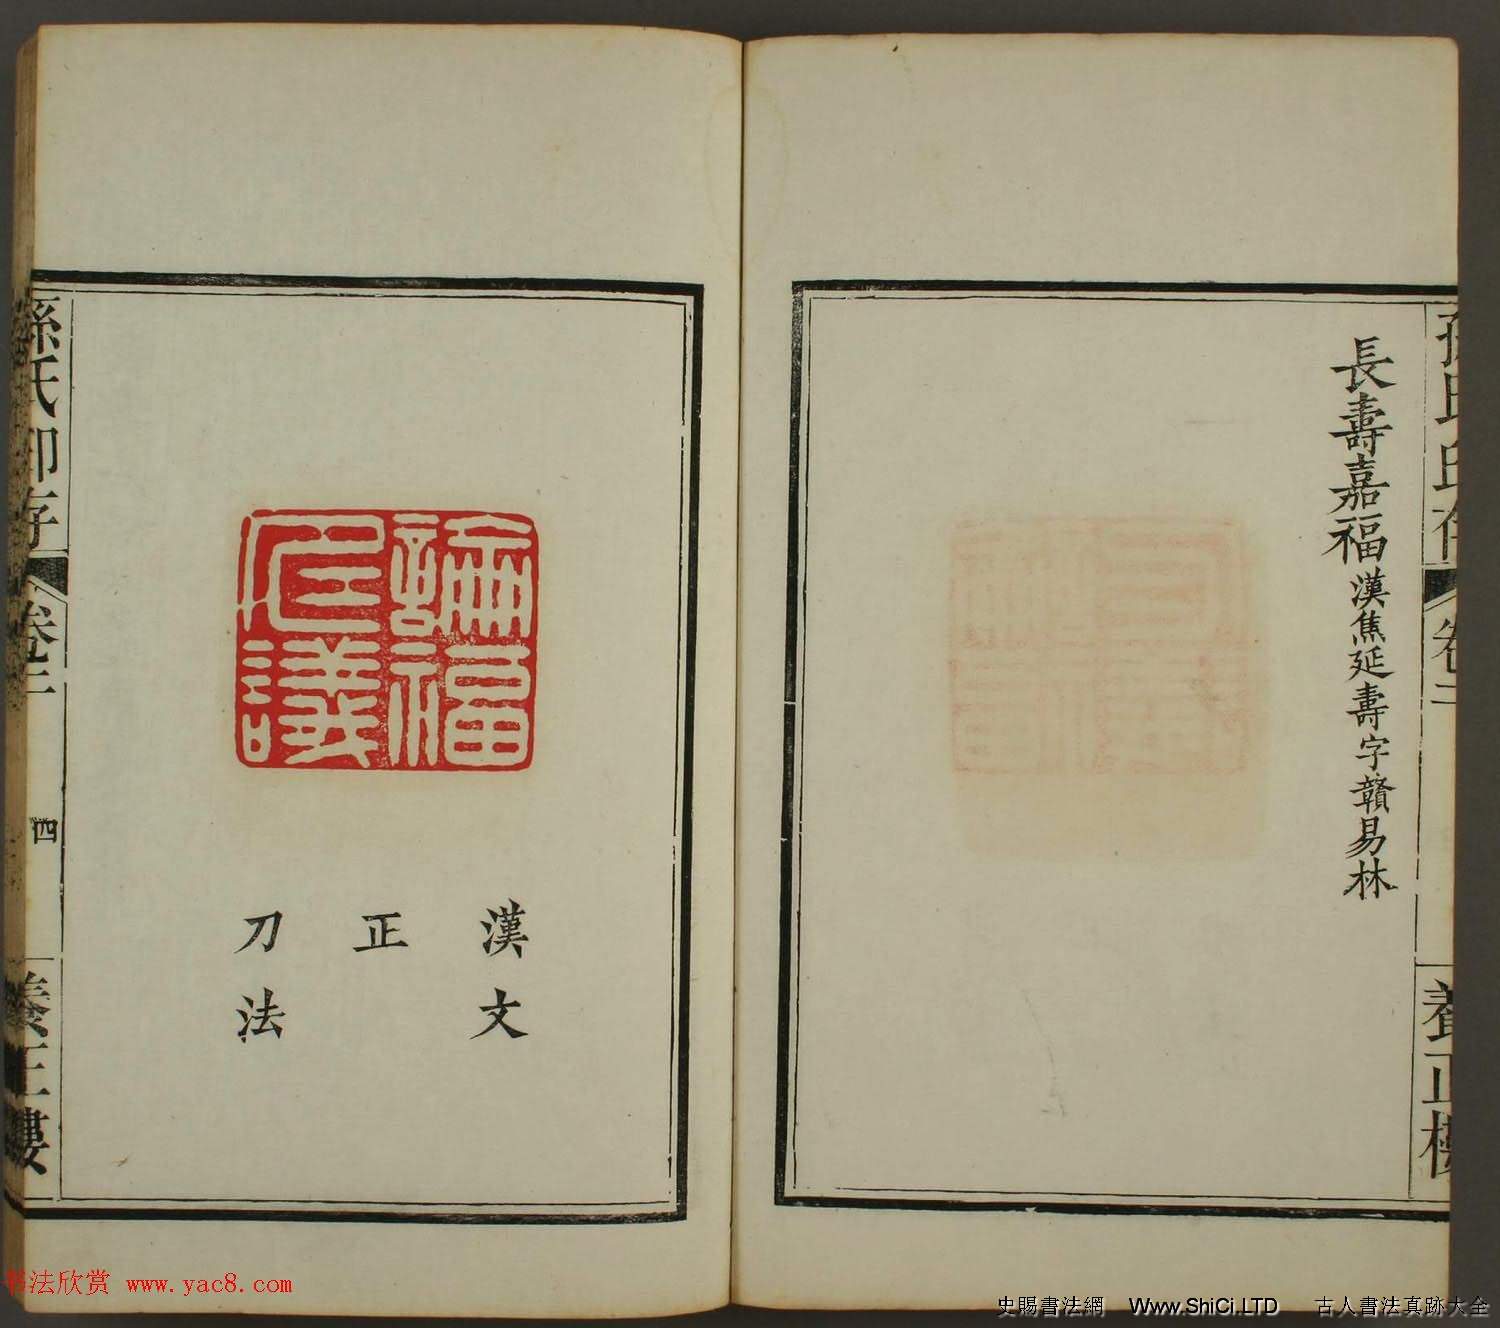 孫氏印存
卷二
養正樓
長壽嘉福 漢焦延壽字贛易林
論福
仁議
漢文
正
刀法
孫氏印存
卷二
四
養正樓
书法欣赏 www.yac8.com
史賜書法網 Www.ShiCi.LTD 古人書法真跡大全